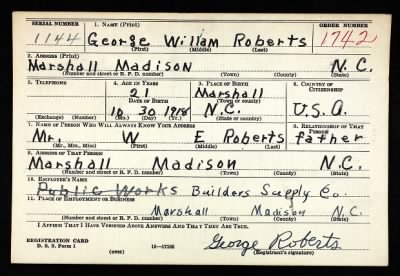 SERIAL NUMBER 1. NAME (Print) ORDER NUMBER
1144 George William Roberts 1742
(First) (Middle) (Last)
2. ADDRESS (Print)
Marshall Madison N.C.
(Number and street or R. F. D. number) (Town) (County) (State)
3. TELEPHONE 4. AGE IN YEARS 5. PLACE OF BIRTH 6. COUNTRY OF CITIZENSHIP
21 Marshall
DATE OF BIRTH (Town) (County)
10 30 1918 N.C. U.S.A.
(Exchange) (Number) (Mo.) (Day) (Yr.) (State or country)
7. NAME OF PERSON WHO WILL ALWAYS KNOW YOUR ADDRESS 8. RELATIONSHIP OF THAT PERSON
Mr. W E Roberts father
(Mr., Mrs., Miss) (First) (Middle) (Last)
9. ADDRESS OF THAT PERSON
Marshall Madison N.C.
(Number and street or R. F. D. number) (Town) (County) (State)
10. EMPLOYER'S NAME
Public Works Builders Supply Co.
11. PLACE OF EMPLOYMENT OR BUSINESS
Marshall Madison N.C.
(Number and street or R. F. D. number) (Town) (County) (State)
I AFFIRM THAT I HAVE VERIFIED ABOVE ANSWERS AND THAT THEY ARE TRUE.
REGISTRATION CARD George Roberts
D. S. S. Form 1 (over) 16—17105 (Registrant's signature)